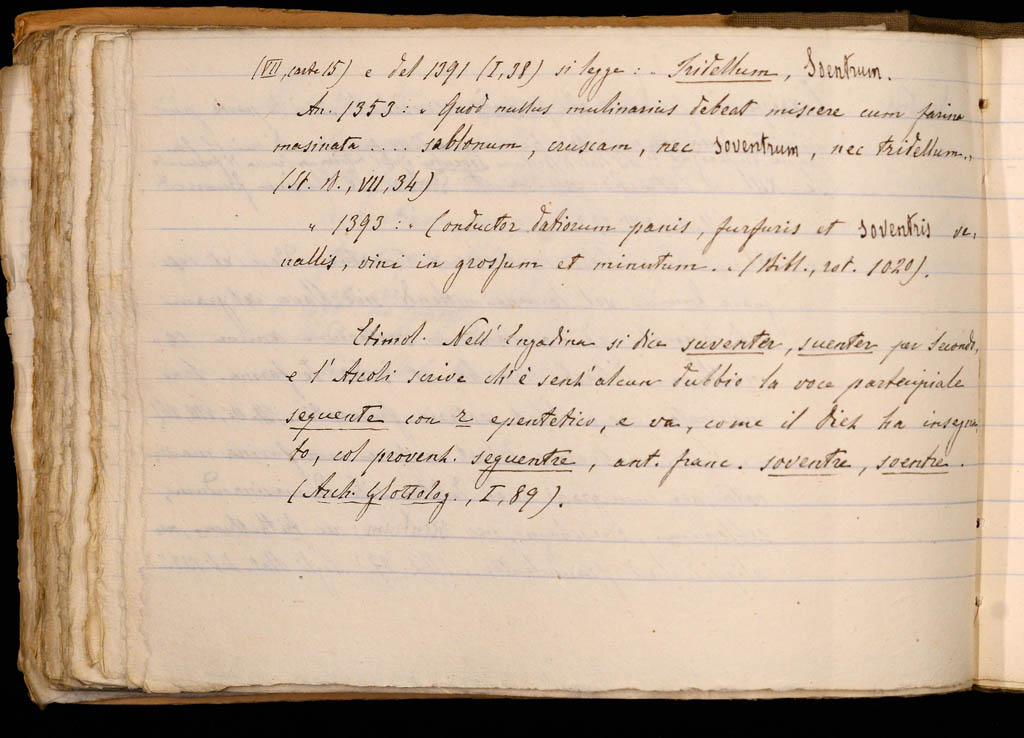 (VII, carte 15) e del 1391 (I, 38) si legge: „ Tridellum, Soentrum.
An. 1353: „ Quod nullus mulinarius debeat miscere cum farina
masinata .... sablonum, cruscam, nec soventrum, nec tridellum „
(St. d., VII, 34)
„ 1393: „ Conductor datiorum panis, furfuris et soventris ve,
nallis, vini in grossum et minutum. „ (Bibl., rot. 1020).
Etimol. Nell' Engadina si dice suventer, suenter per secondo,
e l' Ascoli scrive ch' è senz' alcun dubbio la voce participiale
seguente con r epentetico, e va, come il Diez ha insegna,
to, col provenz. seguentre, ant. franc. soventre, soentre.
(Arch. Glottolog., I, 89).